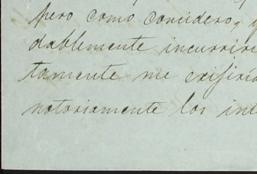 pero como considero, y
dablemente incurrire
tamente me exijiria
notoriamente los int